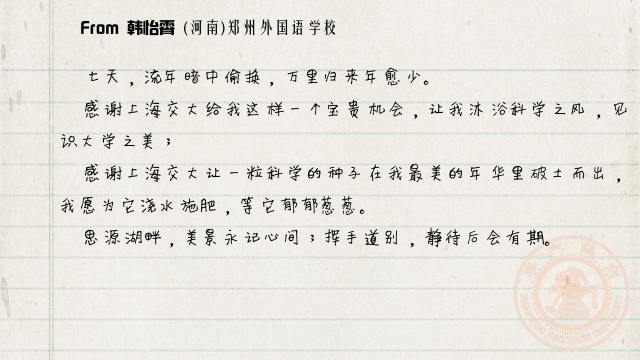 From 韩怡霄 (河南)郑州外国语学校
七天，流年暗中偷换，万里归来年愈少。
感谢上海交大给我这样一个宝贵机会，让我沐浴科学之风，见
识大学之美；
感谢上海交大让一粒科学的种子在我最美的年华里破土而出，
我愿为它浇水施肥，等它郁郁葱葱。
思源湖畔，美景永记心间；挥手道别，静待后会有期。